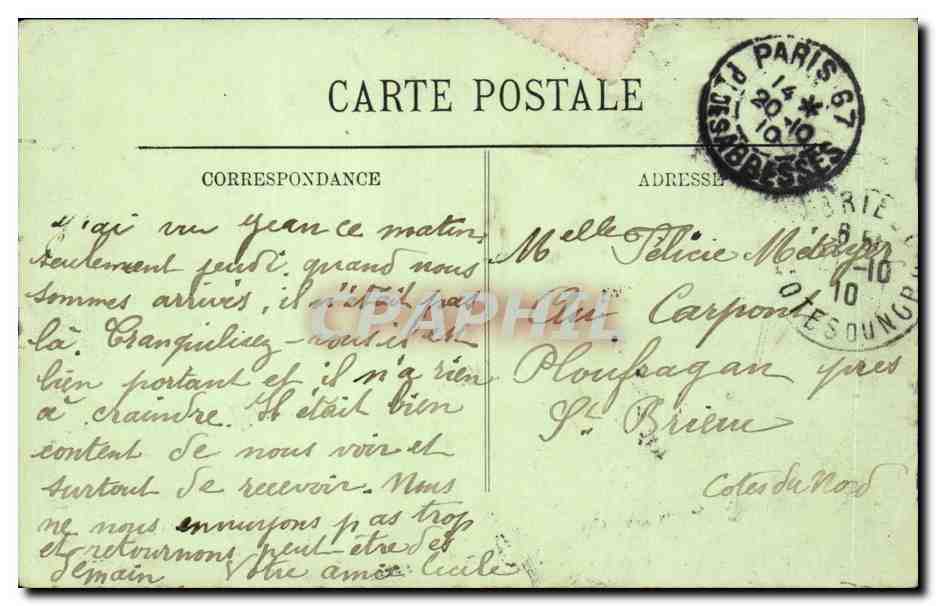 CARTE POSTALE
CORRESPONDANCE
J'ai vu Jean ce matin,
seulement jeudi, quand nous
sommes arrivés, il n'était pas
là. Tranquilisez-vous il est
bien portant et il n'a rien
à craindre. Il était bien
content de nous voir et
surtout de recevoir. Nous
ne nous ennuyons pas trop
et retournons peut-être dès
demain Votre amie Cécile
ADRESSE
Melle Félicie Métayer
Au Carpont
Ploufragan près
St Brieuc
Cotes du Nord
PARIS 67
14 *
20-10
10
PL. DES ABBESSES
BRIE
-10
10
COTES DU N
CPRAPHIL